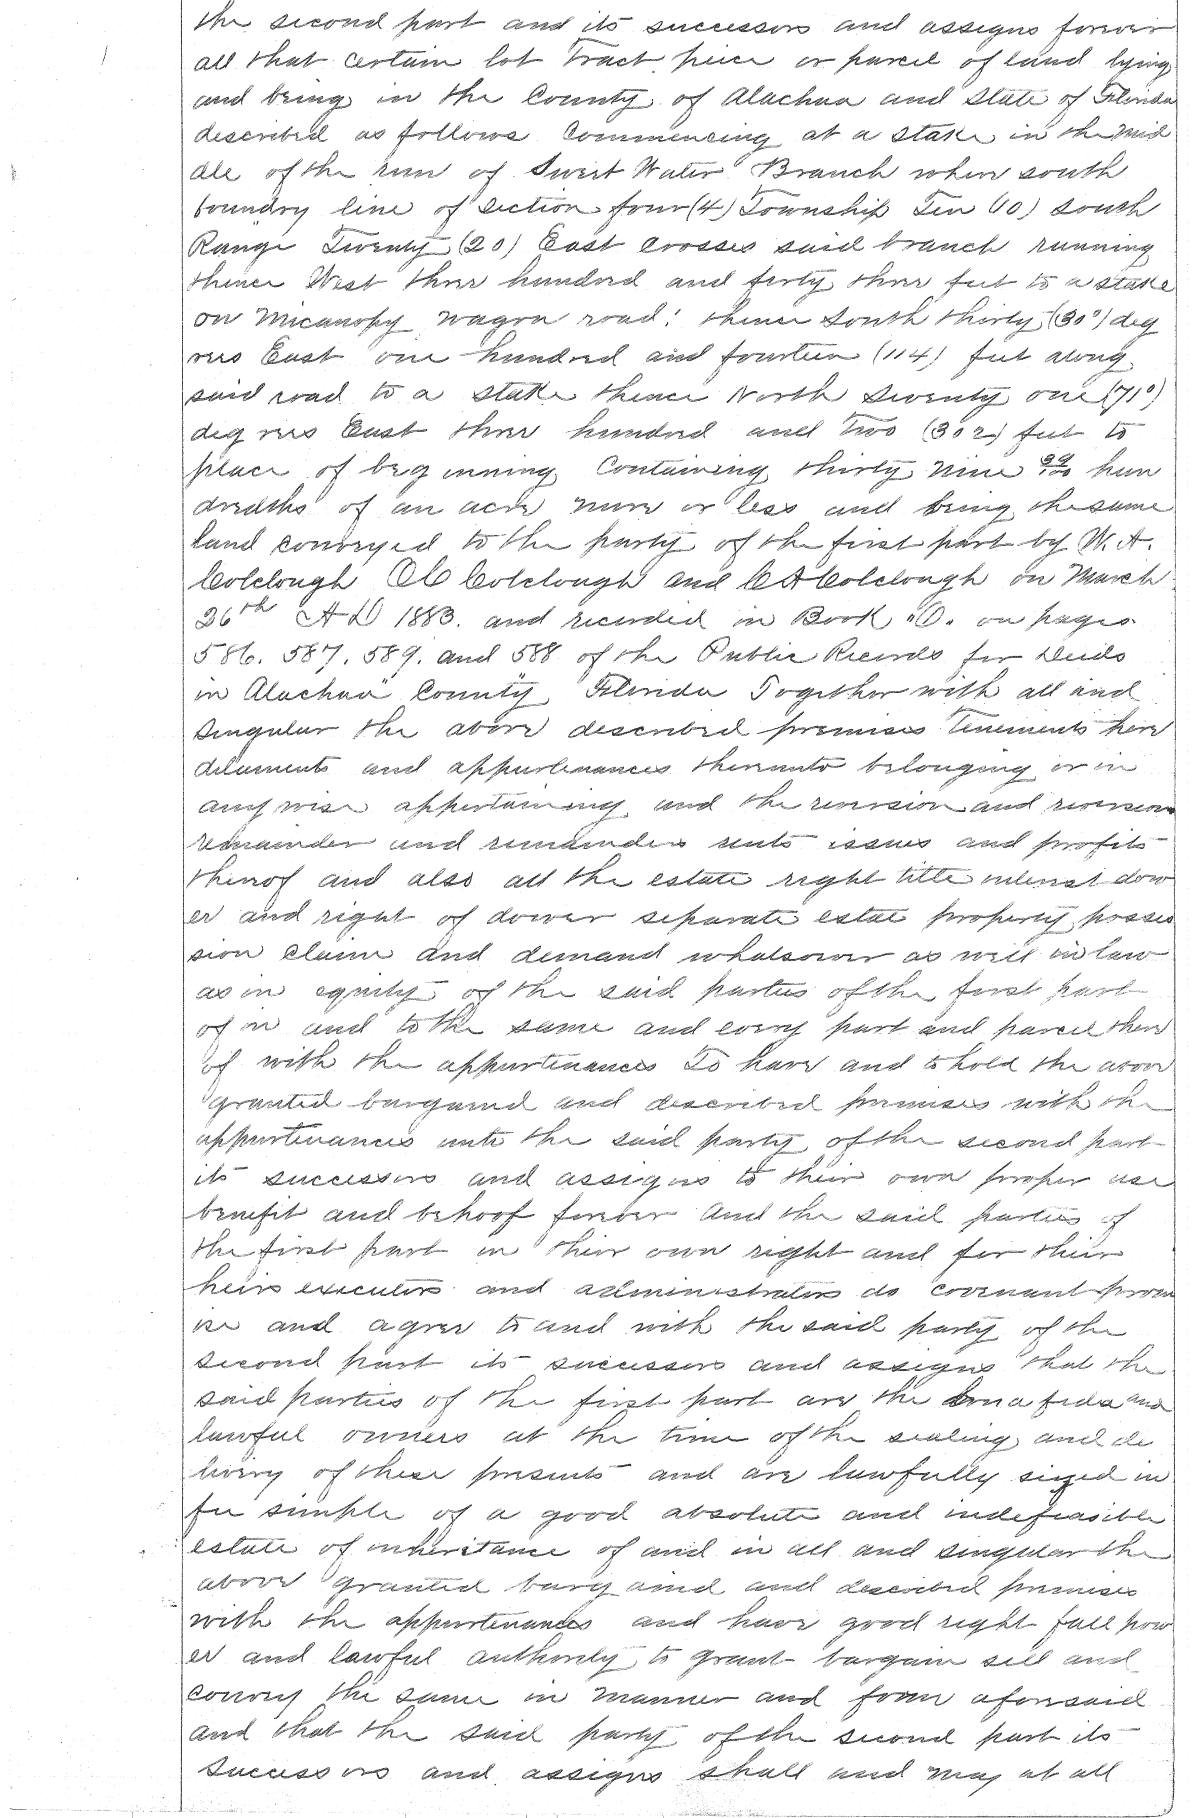 the second part and its successors and assigns forever
all that certain lot Tract, piece or parcel of land lying
and being in the County of Alachua and State of Florida
described as follows Commencing at a stake in the mid
dle of the run of Sweet Water Branch where south
boundry line of section four (4) Township Ten (10) South
Range Twenty (20) East crosses said branch running
thence West three hundred and forty three feet to a stake
on Micanopy wagon road: thence South thirty (30°) deg
rees East one hundred and fourteen (114) feet along
said road to a stake thence North Seventy one (71°)
degrees East three hundred and two (302) feet to
place of beginning Containing thirty nine 39/100 hun
dredths of an acre more or less and being the same
land conveyed to the party of the first part by W. A.
Colclough O C Colclough and C A Colclough on March
26th A D 1883. and recorded in Book "O" on pages
586. 587. 589. and 588 of the Public Records for Deeds
in Alachua County, Florida Together with all and
singular the above described premises tenements here
ditaments and appurtenances thereunto belonging or in
any wise appertaining and the reversion and reversions
remainder and remainders rents issues and profits
thereof and also all the estate right title interest dow
er and right of dower separate estate property posses
sion claim and demand whatsoever as well in law
as in equity of the said parties of the first part
of in and to the same and every part and parcel there
of with the appurtenances To have and to hold the above
granted bargained and described premises with the
appurtenances unto the said party of the second part
its successors and assigns to their own proper use
benefit and behoof forever And the said parties of
the first part in their own right and for their
heirs executors and administrators do covenant prom
ise and agree to and with the said party of the
second part its successors and assigns that the
said parties of the first part are the bona fide and
lawful owners at the time of the sealing and de
livery of these presents and are lawfully siezed in
fee simple of a good absolute and indefeasible
estate of inheritance of and in all and singular the
above granted bargained and described premises
with the appurtenances and have good right full pow
er and lawful authority to grant bargain sell and
convey the same in manner and form aforesaid
and that the said party of the second part its
successors and assigns shall and may at all